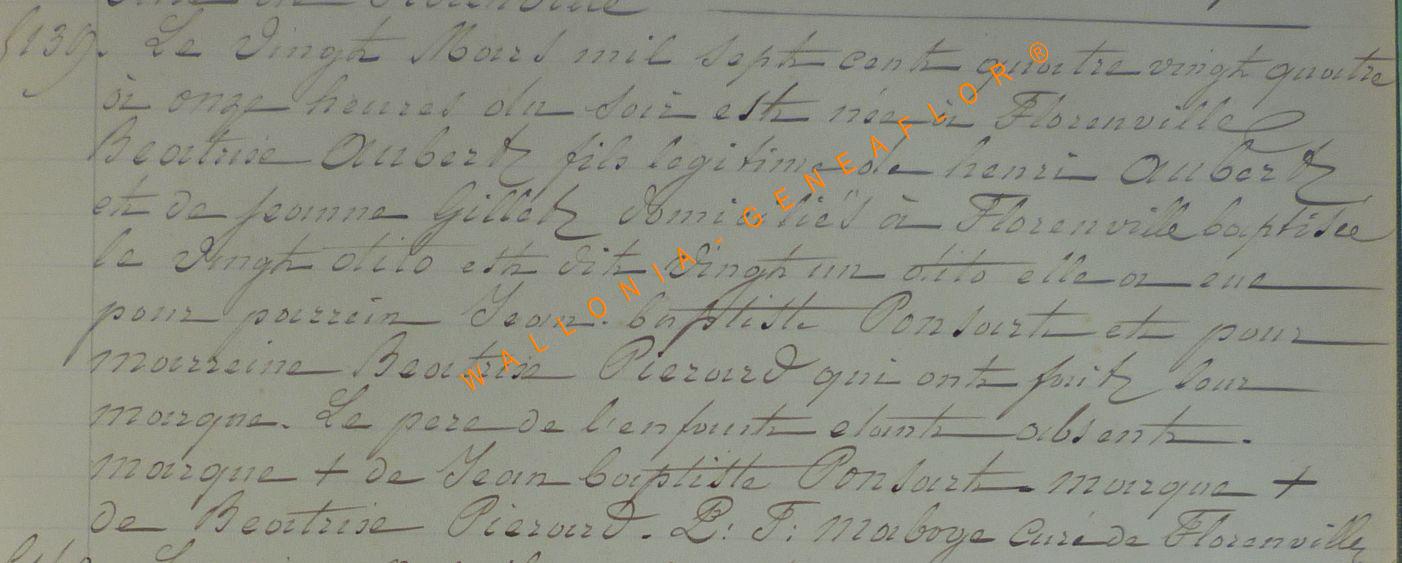 Florenville
5139. Le Vingt Mars mil sept cent quatre vingt quatre
à onze heures du soir est née à Florenville
Beatrise Aubert fils legitime de henri Aubert
et de jeanne Gillet domiciliés à Florenville baptisée
le Vingt dito est dit Vingt un dito elle a eue
pour parrein Jean-baptiste Ponsart et pour
marreine Beatrise Pierard qui ont fait leur
marque. Le pere de l'enfant etant absent.
marque + de Jean baptiste Ponsart. marque +
de Beatrise Pierard. P: F: Maboge Curé de Florenville
WALLONIA - GENEAFLOR ®